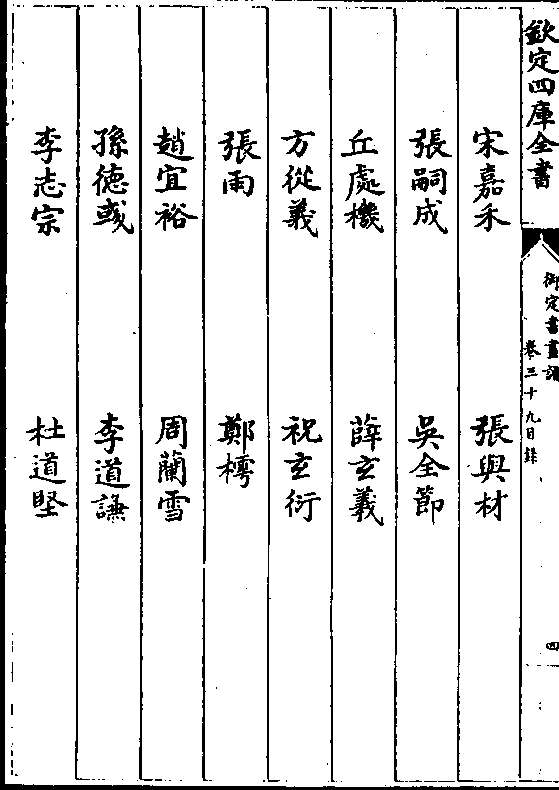 欽定四庫全書
御定書畫譜
卷三十九目錄
四
宋嘉禾 張與材
張嗣成 吳全節
丘處機 薛玄義
方從義 祝玄衍
張雨 鄭樗
趙宜裕 周蘭雪
孫德彧 李道謙
李志宗 杜道堅